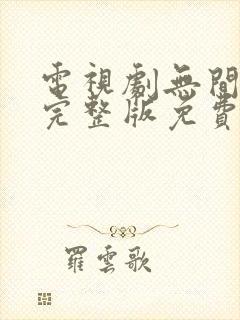 電視劇無間
完整版免費
羅雲歌